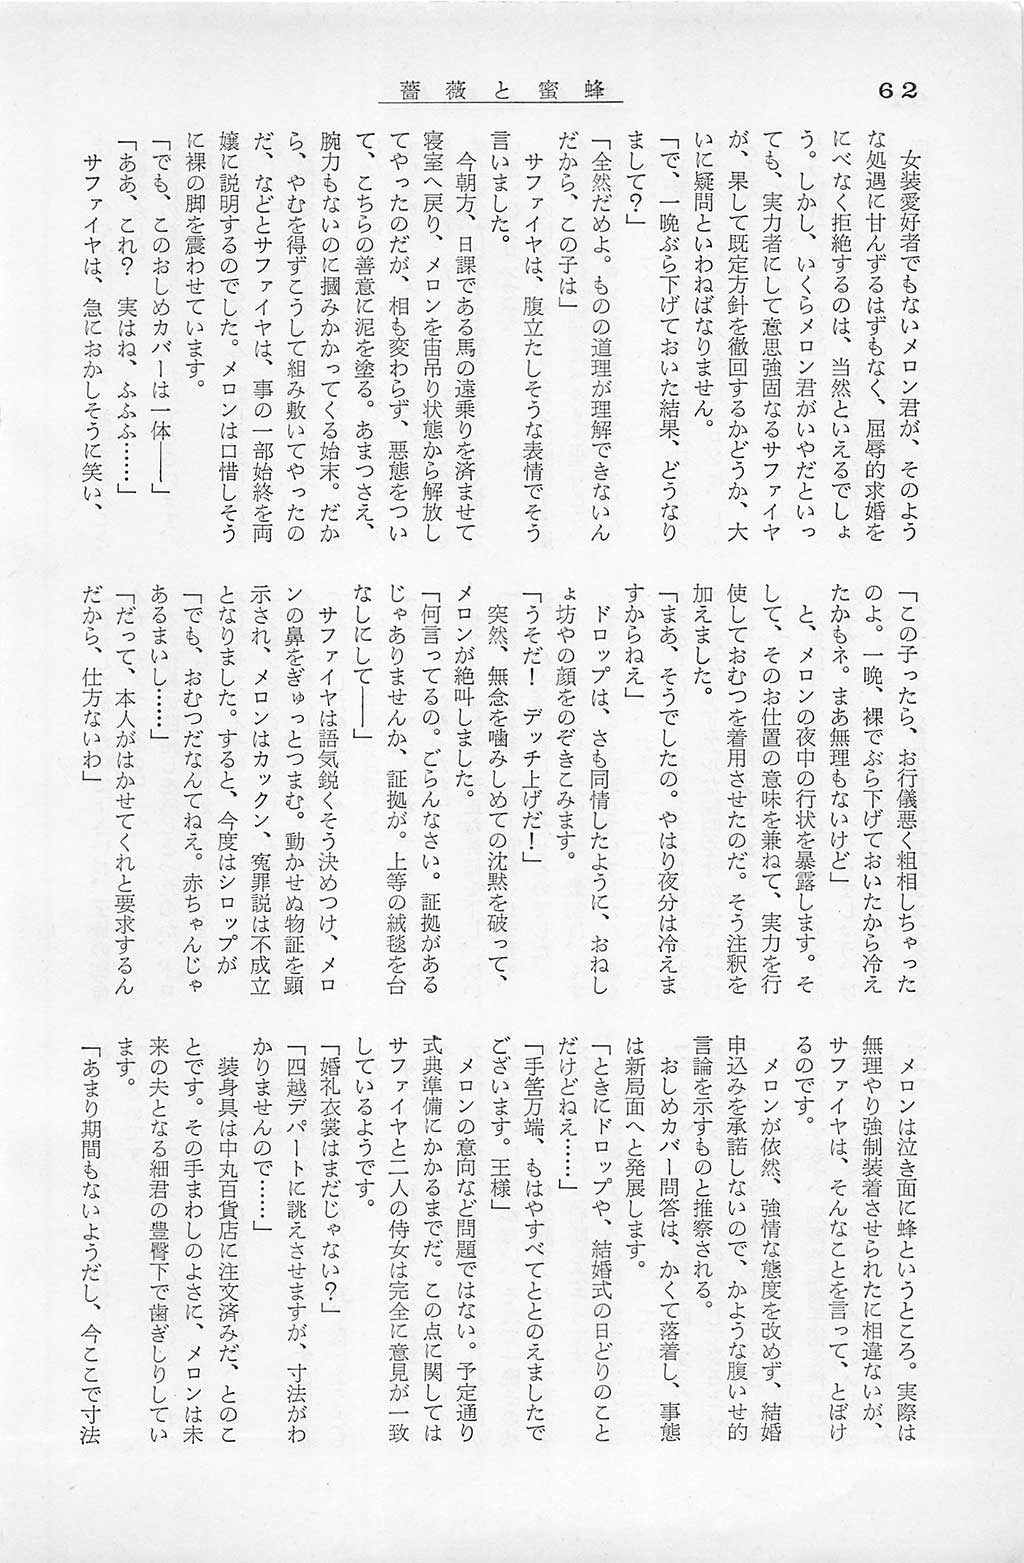 62
薔薇と蜜蜂
女装愛好者でもないメロン君が、そのよう
な処遇に甘んずるはずもなく、屈辱的求婚を
にべなく拒絶するのは、当然といえるでしょ
う。しかし、いくらメロン君がいやだといっ
ても、実力者にして意思強固なるサファイヤ
が、果して既定方針を徹回するかどうか、大
いに疑問といわねばなりません。
「で、一晩ぶら下げておいた結果、どうなり
まして？」
「全然だめよ。ものの道理が理解できないん
だから、この子は」
サファイヤは、腹立たしそうな表情でそう
言いました。
今朝方、日課である馬の遠乗りを済ませて
寝室へ戻り、メロンを宙吊り状態から解放し
てやったのだが、相も変わらず、悪態をつい
て、こちらの善意に泥を塗る。あまつさえ、
腕力もないのに摑みかかってくる始末。だか
ら、やむを得ずこうして組み敷いてやったの
だ、などとサファイヤは、事の一部始終を両
嬢に説明するのでした。メロンは口惜しそう
に裸の脚を震わせています。
「でも、このおしめカバーは一体――」
「ああ、これ？　実はね、ふふふ……」
サファイヤは、急におかしそうに笑い、
「この子ったら、お行儀悪く粗相しちゃった
のよ。一晩、裸でぶら下げておいたから冷え
たかもネ。まあ無理もないけど」
と、メロンの夜中の行状を暴露します。そ
して、そのお仕置の意味を兼ねて、実力を行
使しておむつを着用させたのだ。そう注釈を
加えました。
「まあ、そうでしたの。やはり夜分は冷えま
すからねえ」
ドロップは、さも同情したように、おねし
ょ坊やの顔をのぞきこみます。
「うそだ！　デッチ上げだ！」
突然、無念を嚙みしめての沈黙を破って、
メロンが絶叫しました。
「何言ってるの。ごらんなさい。証拠がある
じゃありませんか、証拠が。上等の絨毯を台
なしにして――」
サファイヤは語気鋭くそう決めつけ、メロ
ンの鼻をぎゅっとつまむ。動かせぬ物証を顕
示され、メロンはカックン、冤罪説は不成立
となりました。すると、今度はシロップが
「でも、おむつだなんてねえ。赤ちゃんじゃ
あるまいし……」
「だって、本人がはかせてくれと要求するん
だから、仕方ないわ」
メロンは泣き面に蜂というところ。実際は
無理やり強制装着させられたに相違ないが、
サファイヤは、そんなことを言って、とぼけ
るのです。
メロンが依然、強情な態度を改めず、結婚
申込みを承諾しないので、かような腹いせ的
言論を示すものと推察される。
おしめカバー問答は、かくて落着し、事態
は新局面へと発展します。
「ときにドロップや、結婚式の日どりのこと
だけどねえ……」
「手筈万端、もはやすべてととのえましたで
ございます。王様」
メロンの意向など問題ではない。予定通り
式典準備にかかるまでだ。この点に関しては
サファイヤと二人の侍女は完全に意見が一致
しているようです。
「婚礼衣裳はまだじゃない？」
「四越デパートに誂えさせますが、寸法がわ
かりませんので……」
装身具は中丸百貨店に注文済みだ、とのこ
とです。その手まわしのよさに、メロンは未
来の夫となる細君の豊臀下で歯ぎしりしてい
ます。
「あまり期間もないようだし、今ここで寸法